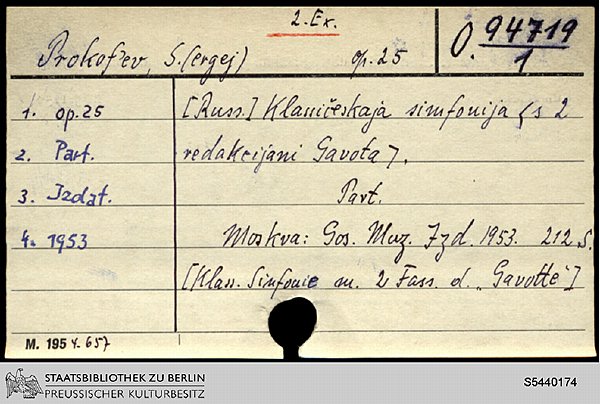 2. Ex.
Prokof'ev, S.(ergej) op. 25
O. 94719
1
1. op. 25 [Russ.] Klaničeskaja simfonija <s 2
2. Part. redakcijani Gavota>.
3. Izdat. Part.
4. 1953 Moskva: Gos. Muz. Izd. 1953. 212 S.
[Klass. Sinfonie m. 2 Fass. d. „Gavotte"]
M. 195 4. 657
STAATSBIBLIOTHEK ZU BERLIN
PREUSSISCHER KULTURBESITZ
S5440174